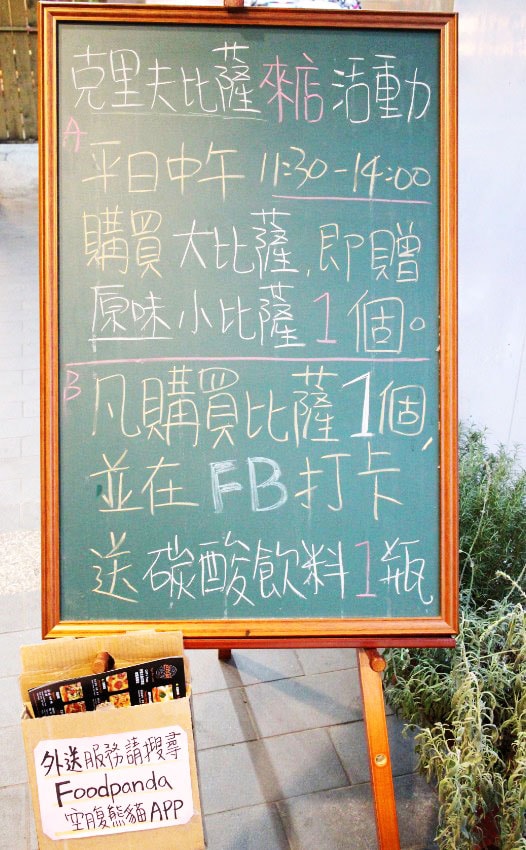 克里夫比薩來店活動力
A
平日中午 11:30-14:00
購買大比薩,即贈
原味小比薩1個。
B
凡購買比薩1個,
並在FB打卡
送碳酸飲料1瓶
外送服務請搜尋
Foodpanda
空腹熊貓APP